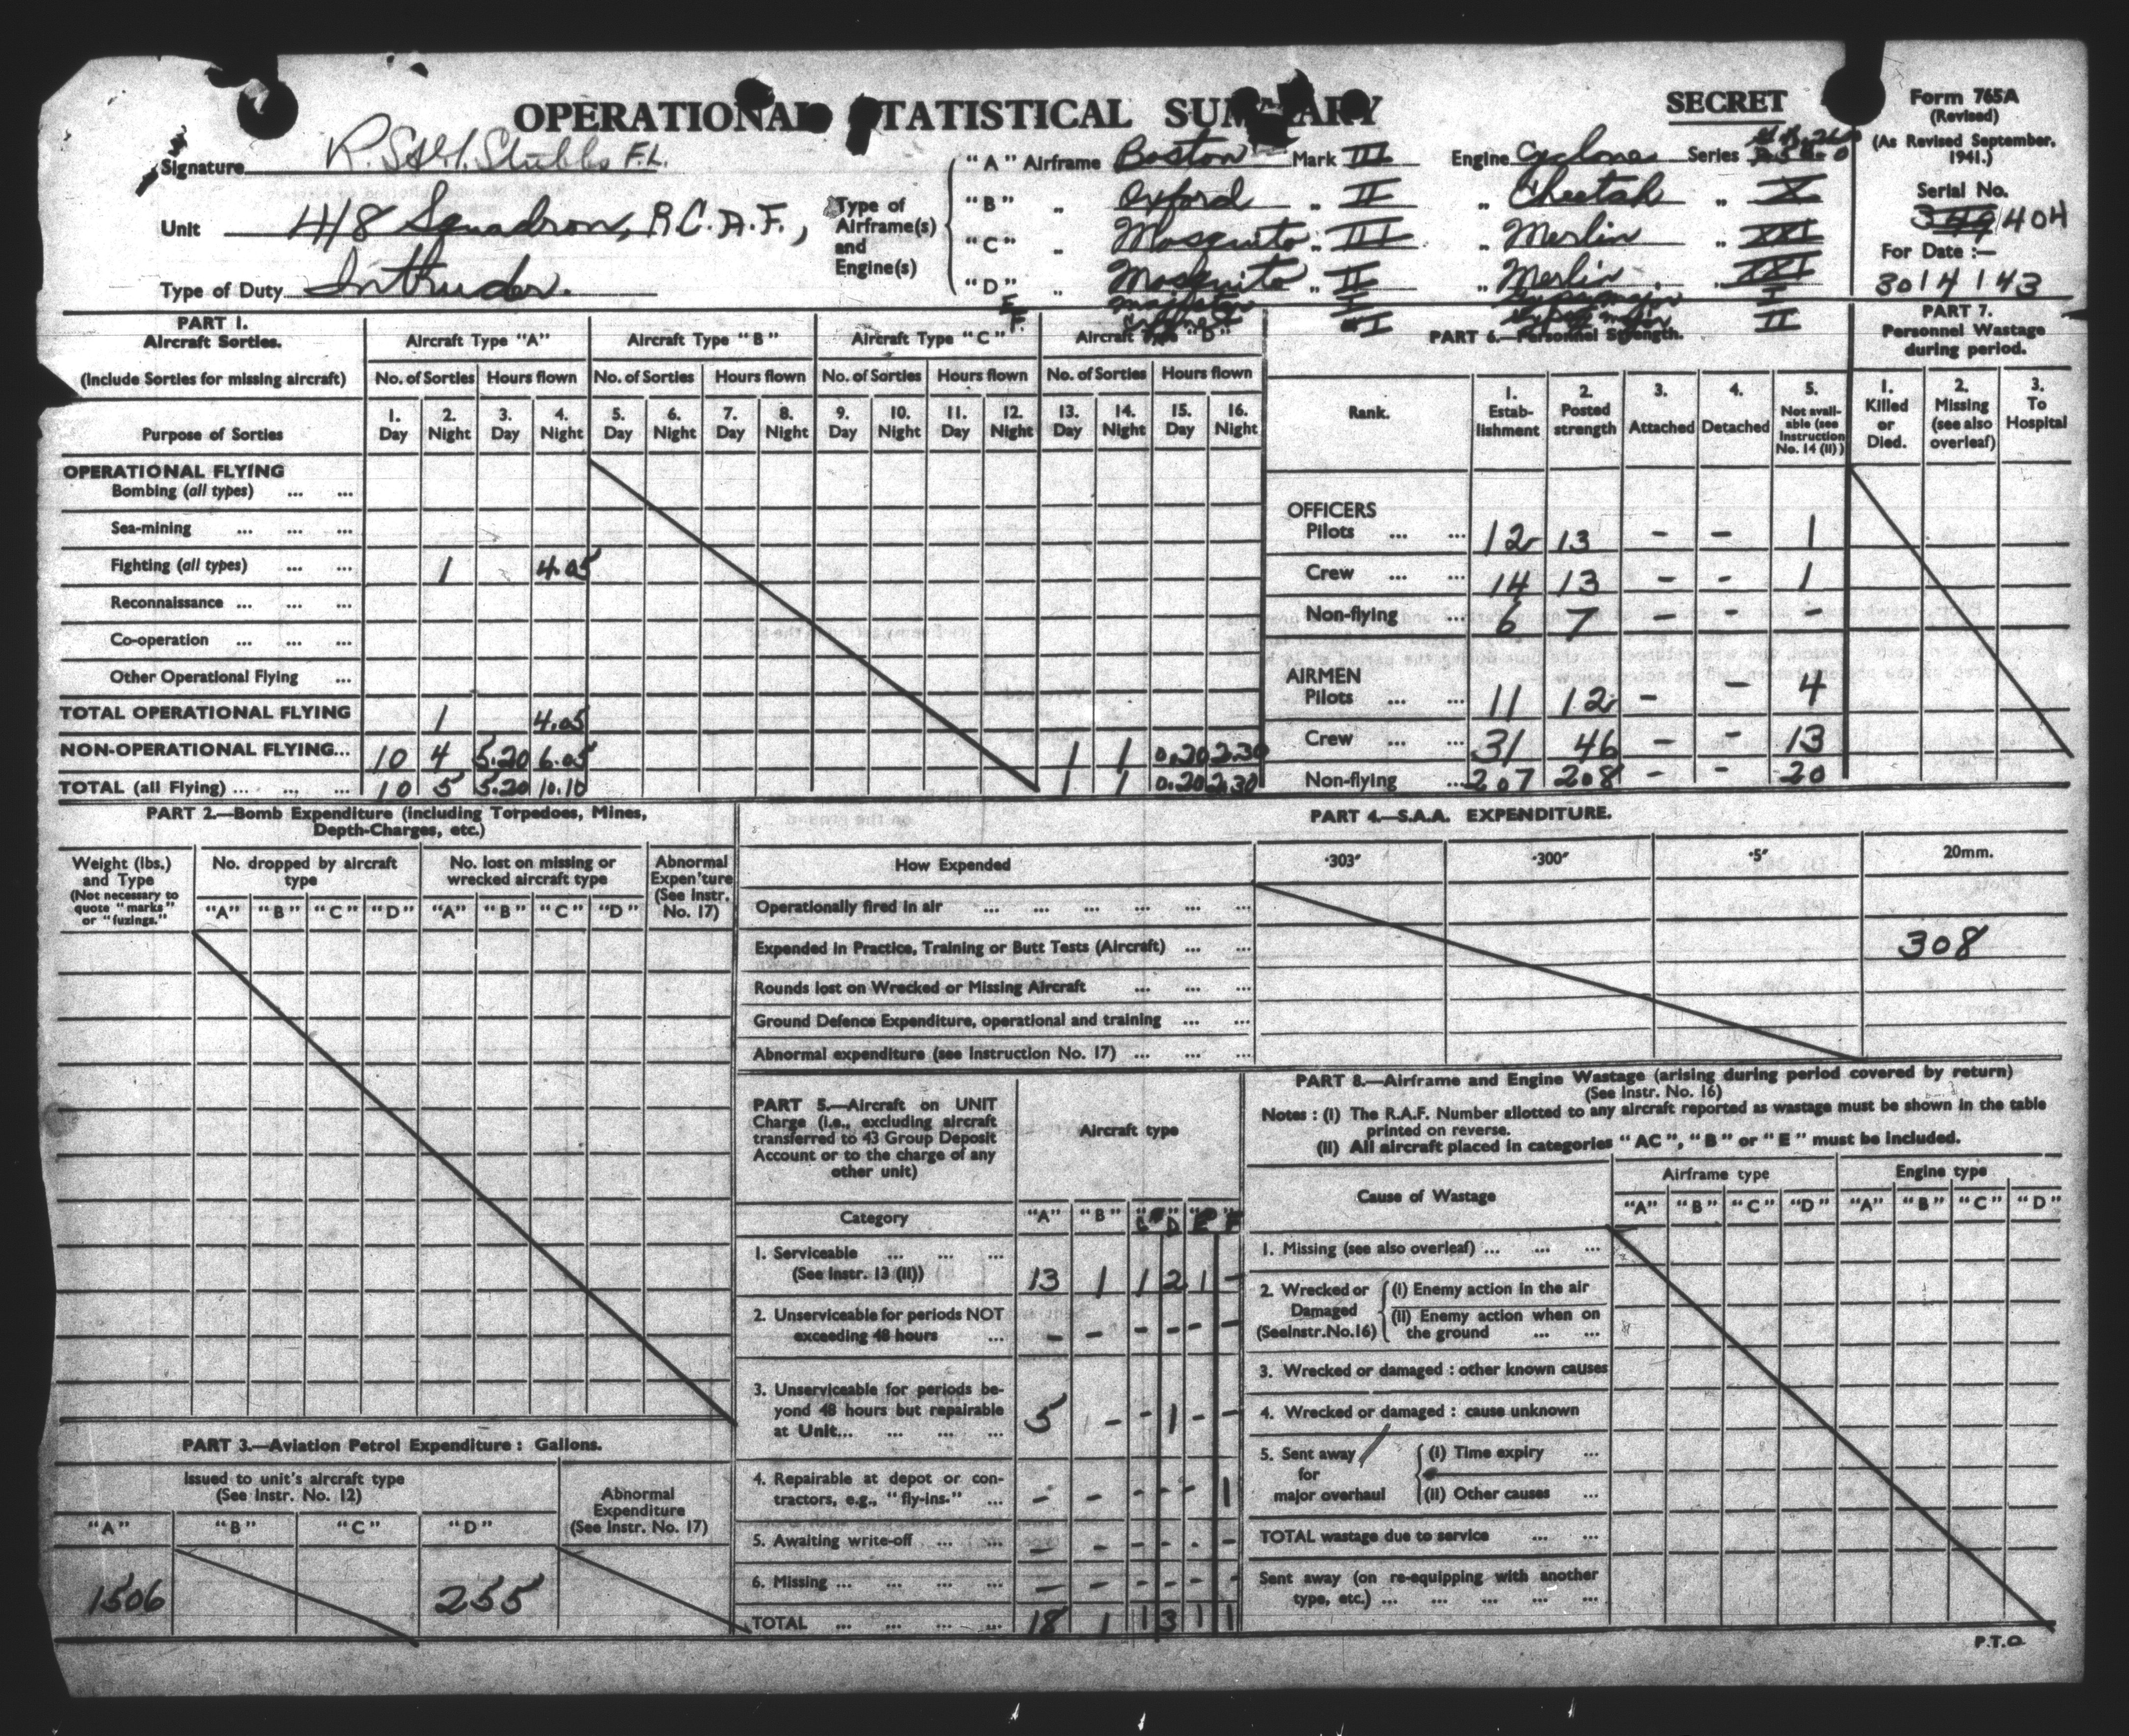 OPERATIONAL STATISTICAL SUMMARY
SECRET
Form 765A
(Revised)
(As Revised September, 1941.)
Serial No.
404
For Date :—
30/4/43
Signature
Stubbs F.L.
Unit 418 Squadron, R.C.A.F.,
Type of Duty Intruder.
Type of Airframe(s) and Engine(s)
"A" Airframe Boston Mark III Engine Cyclone Series
"B" „ Oxford „ II „ Cheetah „ X
"C" „ Mosquito „ III „ Merlin „ XXI
"D" „ Mosquito „ II „ Merlin „ XXI
E Magister I I
F. I II
PART 1.
Aircraft Sorties.
(Include Sorties for missing aircraft)
Aircraft Type "A" Aircraft Type "B" Aircraft Type "C" Aircraft Type "D"
No. of Sorties Hours flown No. of Sorties Hours flown No. of Sorties Hours flown No. of Sorties Hours flown
Purpose of Sorties
1. Day 2. Night 3. Day 4. Night 5. Day 6. Night 7. Day 8. Night 9. Day 10. Night 11. Day 12. Night 13. Day 14. Night 15. Day 16. Night
OPERATIONAL FLYING
Bombing (all types) ... ...
Sea-mining ... ... ...
Fighting (all types) ... ... 1 4.05
Reconnaissance ... ... ...
Co-operation ... ... ...
Other Operational Flying ...
TOTAL OPERATIONAL FLYING 1 4.05
NON-OPERATIONAL FLYING... 10 4 5.20 6.05 1 1 0.20 2.30
TOTAL (all Flying) ... ... ... 10 5 5.20 10.10 1 1 0.20 2.30
PART 6.—Personnel Strength.
Rank. 1. Establishment 2. Posted strength 3. Attached 4. Detached 5. Not available (see Instruction No. 14 (ii))
OFFICERS
Pilots ... ... 12 13 - - 1
Crew ... ... 14 13 - - 1
Non-flying ... 6 7 - - -
AIRMEN
Pilots ... ... 11 12 - - 4
Crew ... ... 31 46 - - 13
Non-flying ... 207 208 - - 20
PART 7.
Personnel Wastage during period.
1. Killed or Died. 2. Missing (see also overleaf) 3. To Hospital
PART 2.—Bomb Expenditure (including Torpedoes, Mines,
Depth-Charges, etc.)
Weight (lbs.) and Type (Not necessary to quote "marks" or "fuzings.")
No. dropped by aircraft type
No. lost on missing or wrecked aircraft type
Abnormal Expen'ture (See Instr. No. 17)
"A" "B" "C" "D" "A" "B" "C" "D"
PART 4.—S.A.A. EXPENDITURE.
How Expended ·303" ·300" ·5" 20mm.
Operationally fired in air ... ... ... ... ... ...
Expended in Practice, Training or Butt Tests (Aircraft) ... ... 308
Rounds lost on Wrecked or Missing Aircraft ... ... ...
Ground Defence Expenditure, operational and training ... ...
Abnormal expenditure (see Instruction No. 17) ... ... ...
PART 3.—Aviation Petrol Expenditure : Gallons.
Issued to unit's aircraft type
(See Instr. No. 12)
Abnormal Expenditure (See Instr. No. 17)
"A" "B" "C" "D"
1506 255
PART 5.—Aircraft on UNIT
Charge (i.e., excluding aircraft
transferred to 43 Group Deposit
Account or to the charge of any
other unit)
Aircraft type
Category "A" "B" C D E F
1. Serviceable ... ... ...
(See Instr. 13 (ii)) 13 1 1 2 1 -
2. Unserviceable for periods NOT
exceeding 48 hours ... - - - - - -
3. Unserviceable for periods be-
yond 48 hours but repairable
at Unit... ... ... ... 5 - - 1 - -
4. Repairable at depot or con-
tractors, e.g., "fly-ins." ... - - - - - 1
5. Awaiting write-off ... ... - - - - - -
6. Missing ... ... ... ... - - - - - -
TOTAL ... ... ... ... 18 1 1 3 1 1
PART 8.—Airframe and Engine Wastage (arising during period covered by return)
(See Instr. No. 16)
Notes : (i) The R.A.F. Number allotted to any aircraft reported as wastage must be shown in the table
printed on reverse.
(ii) All aircraft placed in categories "AC", "B" or "E" must be included.
Cause of Wastage
Airframe type Engine type
"A" "B" "C" "D" "A" "B" "C" "D"
1. Missing (see also overleaf) ... ... ...
2. Wrecked or Damaged (See Instr. No. 16)
(i) Enemy action in the air
(ii) Enemy action when on
the ground ... ...
3. Wrecked or damaged : other known causes
4. Wrecked or damaged : cause unknown
5. Sent away for major overhaul
(i) Time expiry ...
(ii) Other causes ...
TOTAL wastage due to service ... ...
Sent away (on re-equipping with another
type, etc.) ... ... ... ... ...
P.T.O.